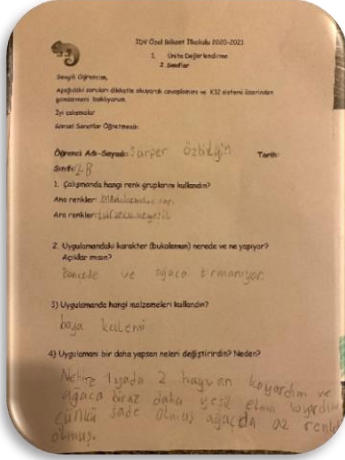 İDV Özel Bilkent İlkokulu 2020-2021
1. Ünite Değerlendirme
2. Sınıflar
Sevgili Öğrencim,
Aşağıdaki soruları dikkatle okuyarak cevaplamanı ve K12 sistemi üzerinden
göndermeni bekliyorum.
İyi çalışmalar
Görsel Sanatlar Öğretmenin
Öğrenci Adı-Soyadı: Sarper Özbilgin Tarih:
Sınıfı: 2B
1. Çalışmanda hangi renk gruplarını kullandın?
Ana renkler:
Ara renkler:
2. Uygulamandaki karakter (bukalemun) nerede ve ne yapıyor?
Açıklar mısın?
Bahcede ve ağaca tırmanıyor.
3) Uygulamanda hangi malzemeleri kullandın?
boya kalemi
4) Uygulamanı bir daha yapsan neleri değiştirirdin? Neden?
1 yada 2 hayvan koyardım ve
ağaca biraz daha yeşil elma koyardım
çünkü sade olmuş ağaçda az renkli
olmuş.